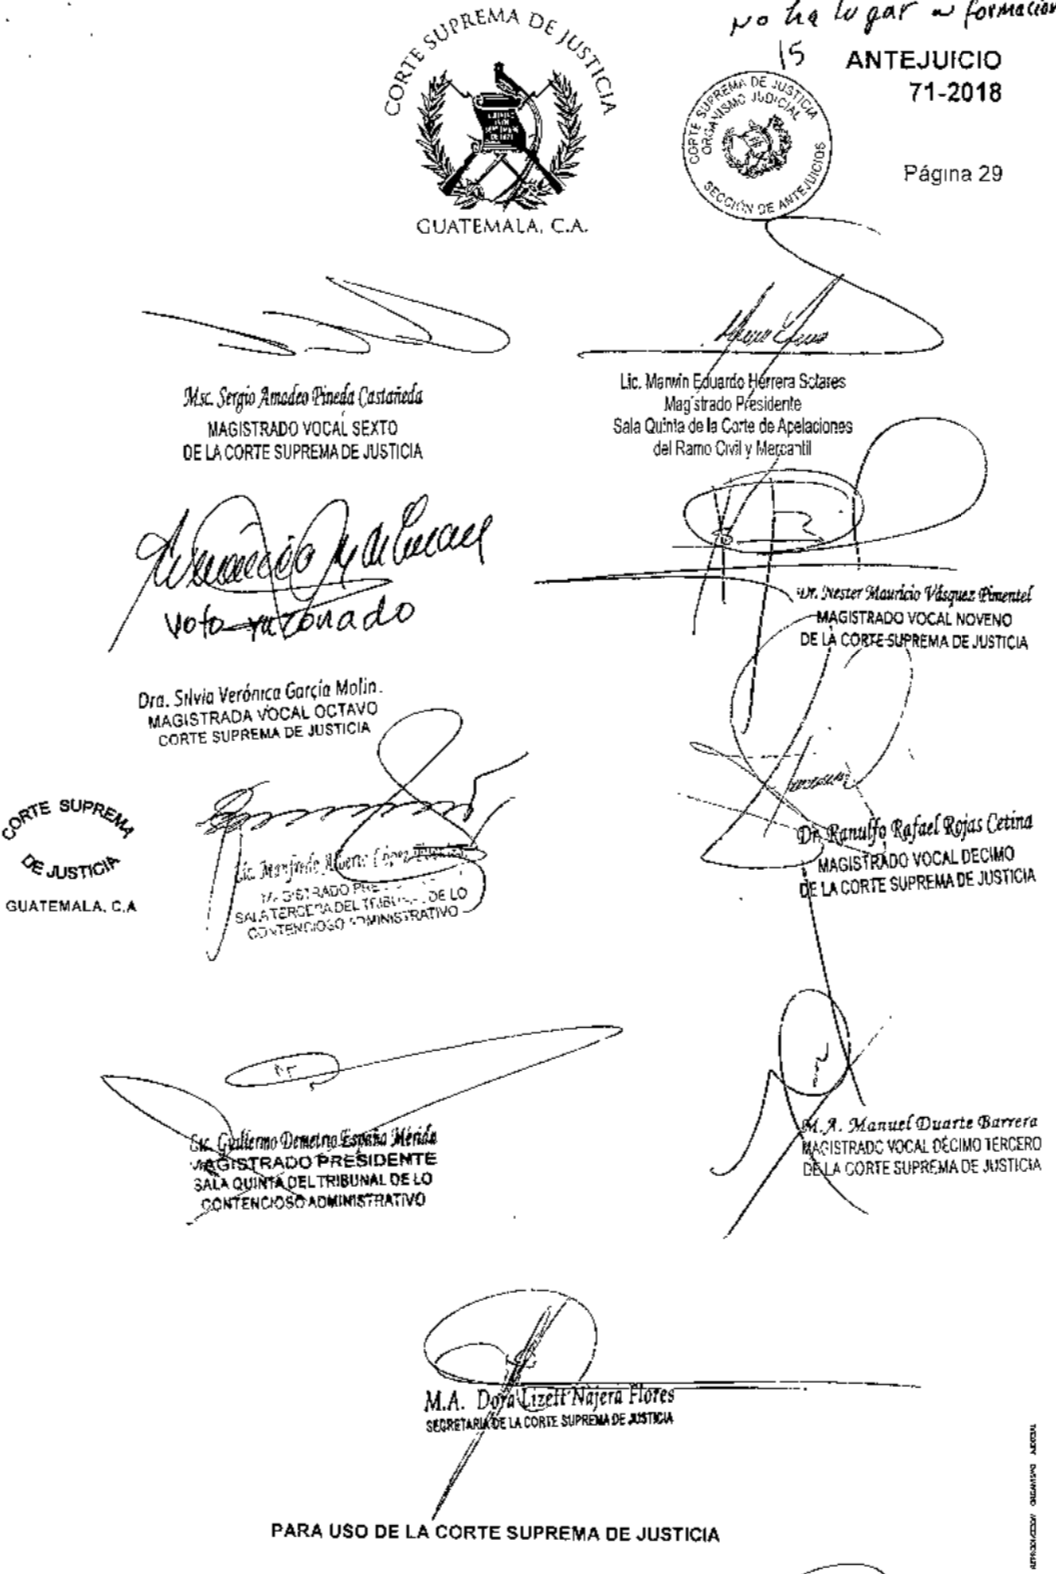 No ha lugar
15
CORTE SUPREMA DE JUSTICIA
GUATEMALA, C.A.
CORTE SUPREMA DE JUSTICIA
ORGANISMO JUDICIAL
SECCIÓN DE ANTEJUICIOS
ANTEJUICIO
71-2018
Página 29
Msc. Sergio Amadeo Pineda Castañeda
MAGISTRADO VOCAL SEXTO
DE LA CORTE SUPREMA DE JUSTICIA
Lic. Marwin Eduardo Herrera Solares
Magistrado Presidente
Sala Quinta de la Corte de Apelaciones
del Ramo Civil y Mercantil
voto razonado
Dra. Silvia Verónica García Molin.
MAGISTRADA VOCAL OCTAVO
CORTE SUPREMA DE JUSTICIA
Dr. Nester Mauricio Vásquez Pimentel
MAGISTRADO VOCAL NOVENO
DE LA CORTE SUPREMA DE JUSTICIA
CORTE SUPREMA
DE JUSTICIA
GUATEMALA, C.A
Lic. Manfredo Alberto López
MAGISTRADO
SALA TERCERA DEL DE LO
CONTENCIOSO ADMINISTRATIVO
Dr. Ranulfo Rafael Rojas Cetina
MAGISTRADO VOCAL DECIMO
DE LA CORTE SUPREMA DE JUSTICIA
Lic. Guillermo Demetrio España Mérida
MAGISTRADO PRESIDENTE
SALA QUINTA DEL TRIBUNAL DE LO
CONTENCIOSO ADMINISTRATIVO
M.A. Manuel Duarte Barrera
MAGISTRADO VOCAL DÉCIMO TERCERO
DE LA CORTE SUPREMA DE JUSTICIA
M.A. Dora Lizett Najera Flores
SECRETARIA DE LA CORTE SUPREMA DE JUSTICIA
PARA USO DE LA CORTE SUPREMA DE JUSTICIA